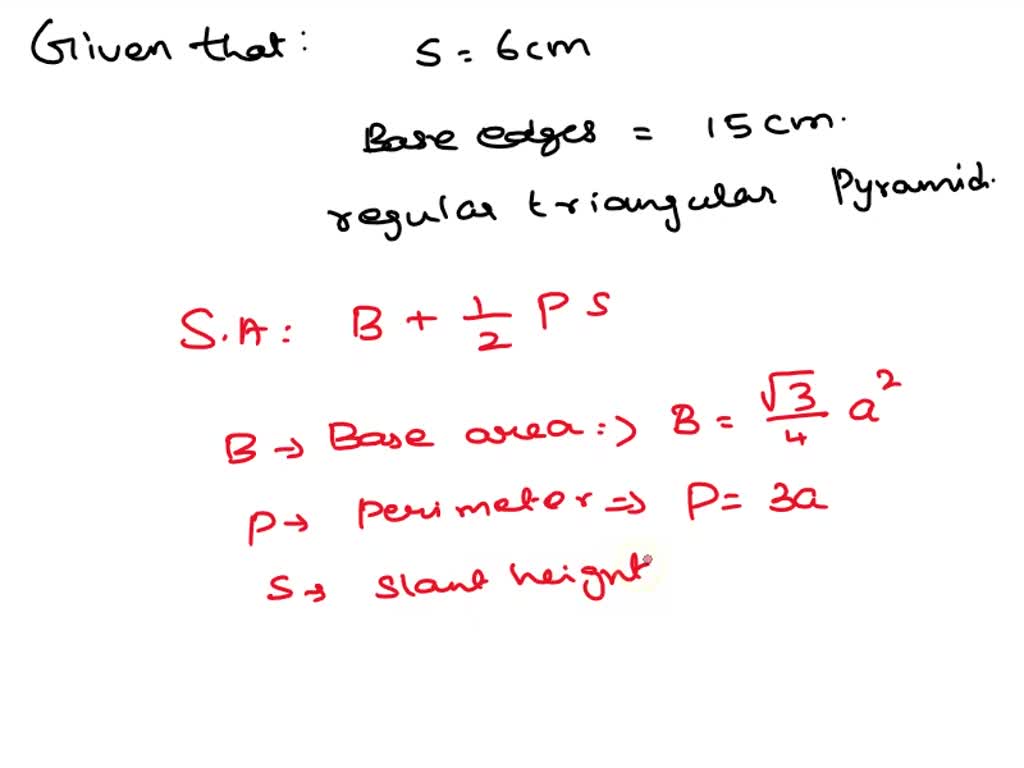 Given that: S = 6cm
Base edges = 15cm.
regular triangular Pyramid.
S.A: B + 1/2 P S
B → Base area :⇒ B = √3/4 a²
P → Perimeter ⇒ P = 3a
S → slant height